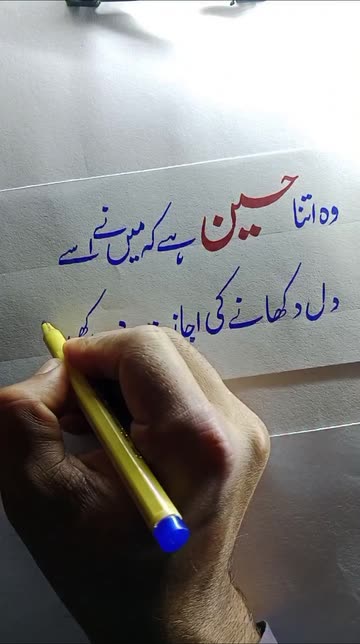 وہ اتنا حسین ہے کہ میں نے اسے
دل دکھانے کی اجازت